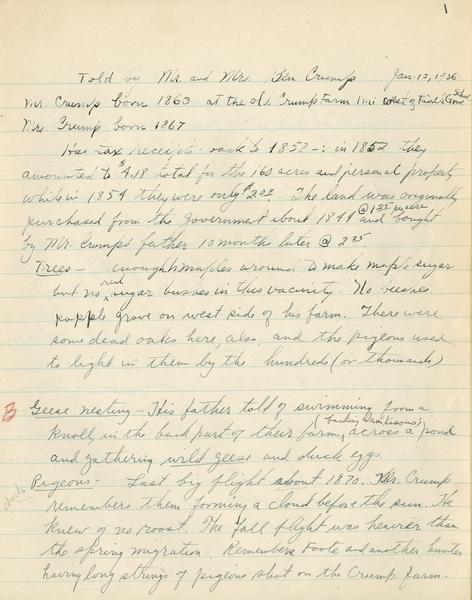 1
Told by Mr. and Mrs. Ben Crump Jan. 12, 1936
Mr. Crump born 1863 at the old Crump Farm 1 mi west of School
Mrs. Crump born 1867
Has tax receipts back to 1852 -: in 1852 they
amounted to $4.18 total for the 160 acres and personal property
while in 1854 they were only $2.02. The land was originally
purchased from the government about 1841 @ 1.25 an acre and bought
by Mr. Crump's father 10 months later @ 2.25.
Trees - enough maples around to make maple sugar
but no real sugar bushes in this vacinity. No beeches
popple grove on west side of his farm. There were
some dead oakes here, also, and the pigeons used
to light in them by the hundreds (or thousands)
B Geese nesting - His father told of swimming from a
knoll in the back part of their farm, across a pond
and gathering wild geese and duck eggs.
Pigeons - Last big flight about 1870. Mr. Crump
remembers them forming a cloud before the sun. He
knew of no roost. The fall flight was heavier than
the spring migration. Remembers Foote and another hunter
having long strings of pigeons shot on the Crump farm.